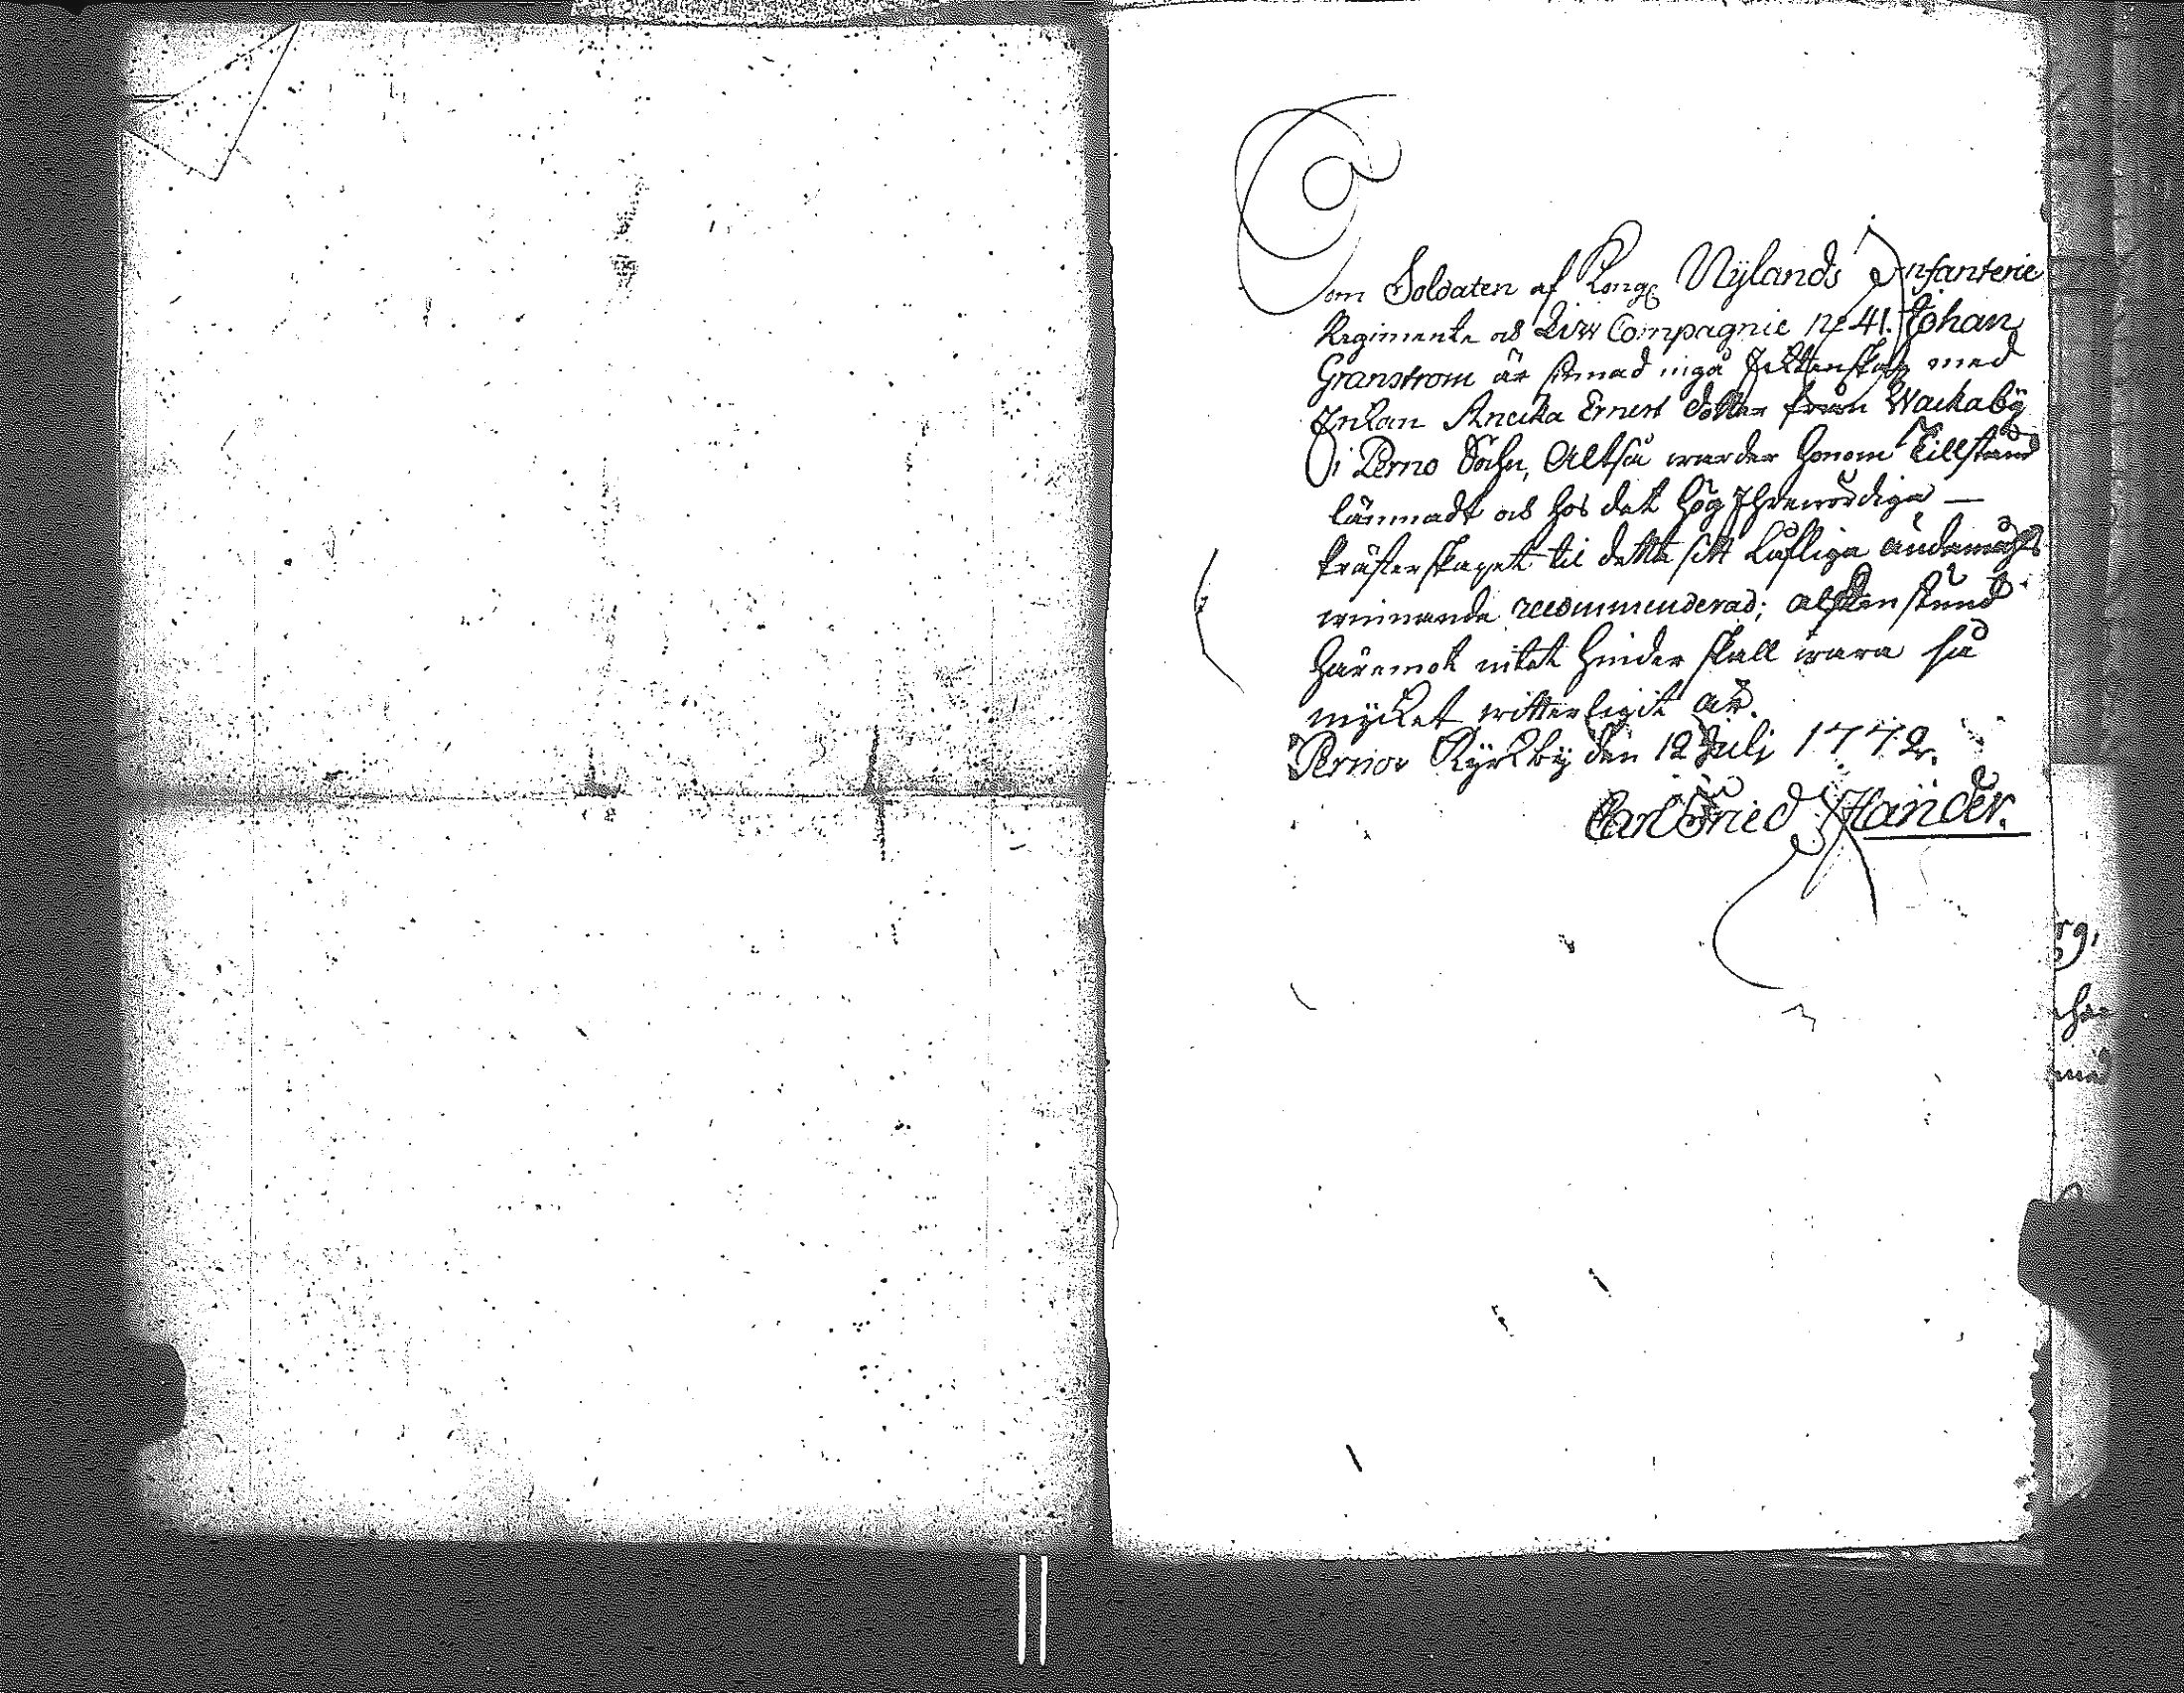 Som Soldaten af Kongl Nÿlands Infanterie
Regimente och Liw Compagnie No 41. Johan
Granstrom är sinnad ingå Ecktenskap med
Enkan Annika Ernest dotter från Wackabÿ
i Perno Sochn, Altså warder honom Tillstånd
lämnadt och hos det Hög Ährewördiga —
Prästerskapet til detta sitt Lofliga ändamåhls
winnande recommenderad; alldenstund
häremot intet hinder skall wara så
mÿcket witterligit är.
Perno Kÿrckbÿ den 12 Julj 1772.
Carl Fried Hander.